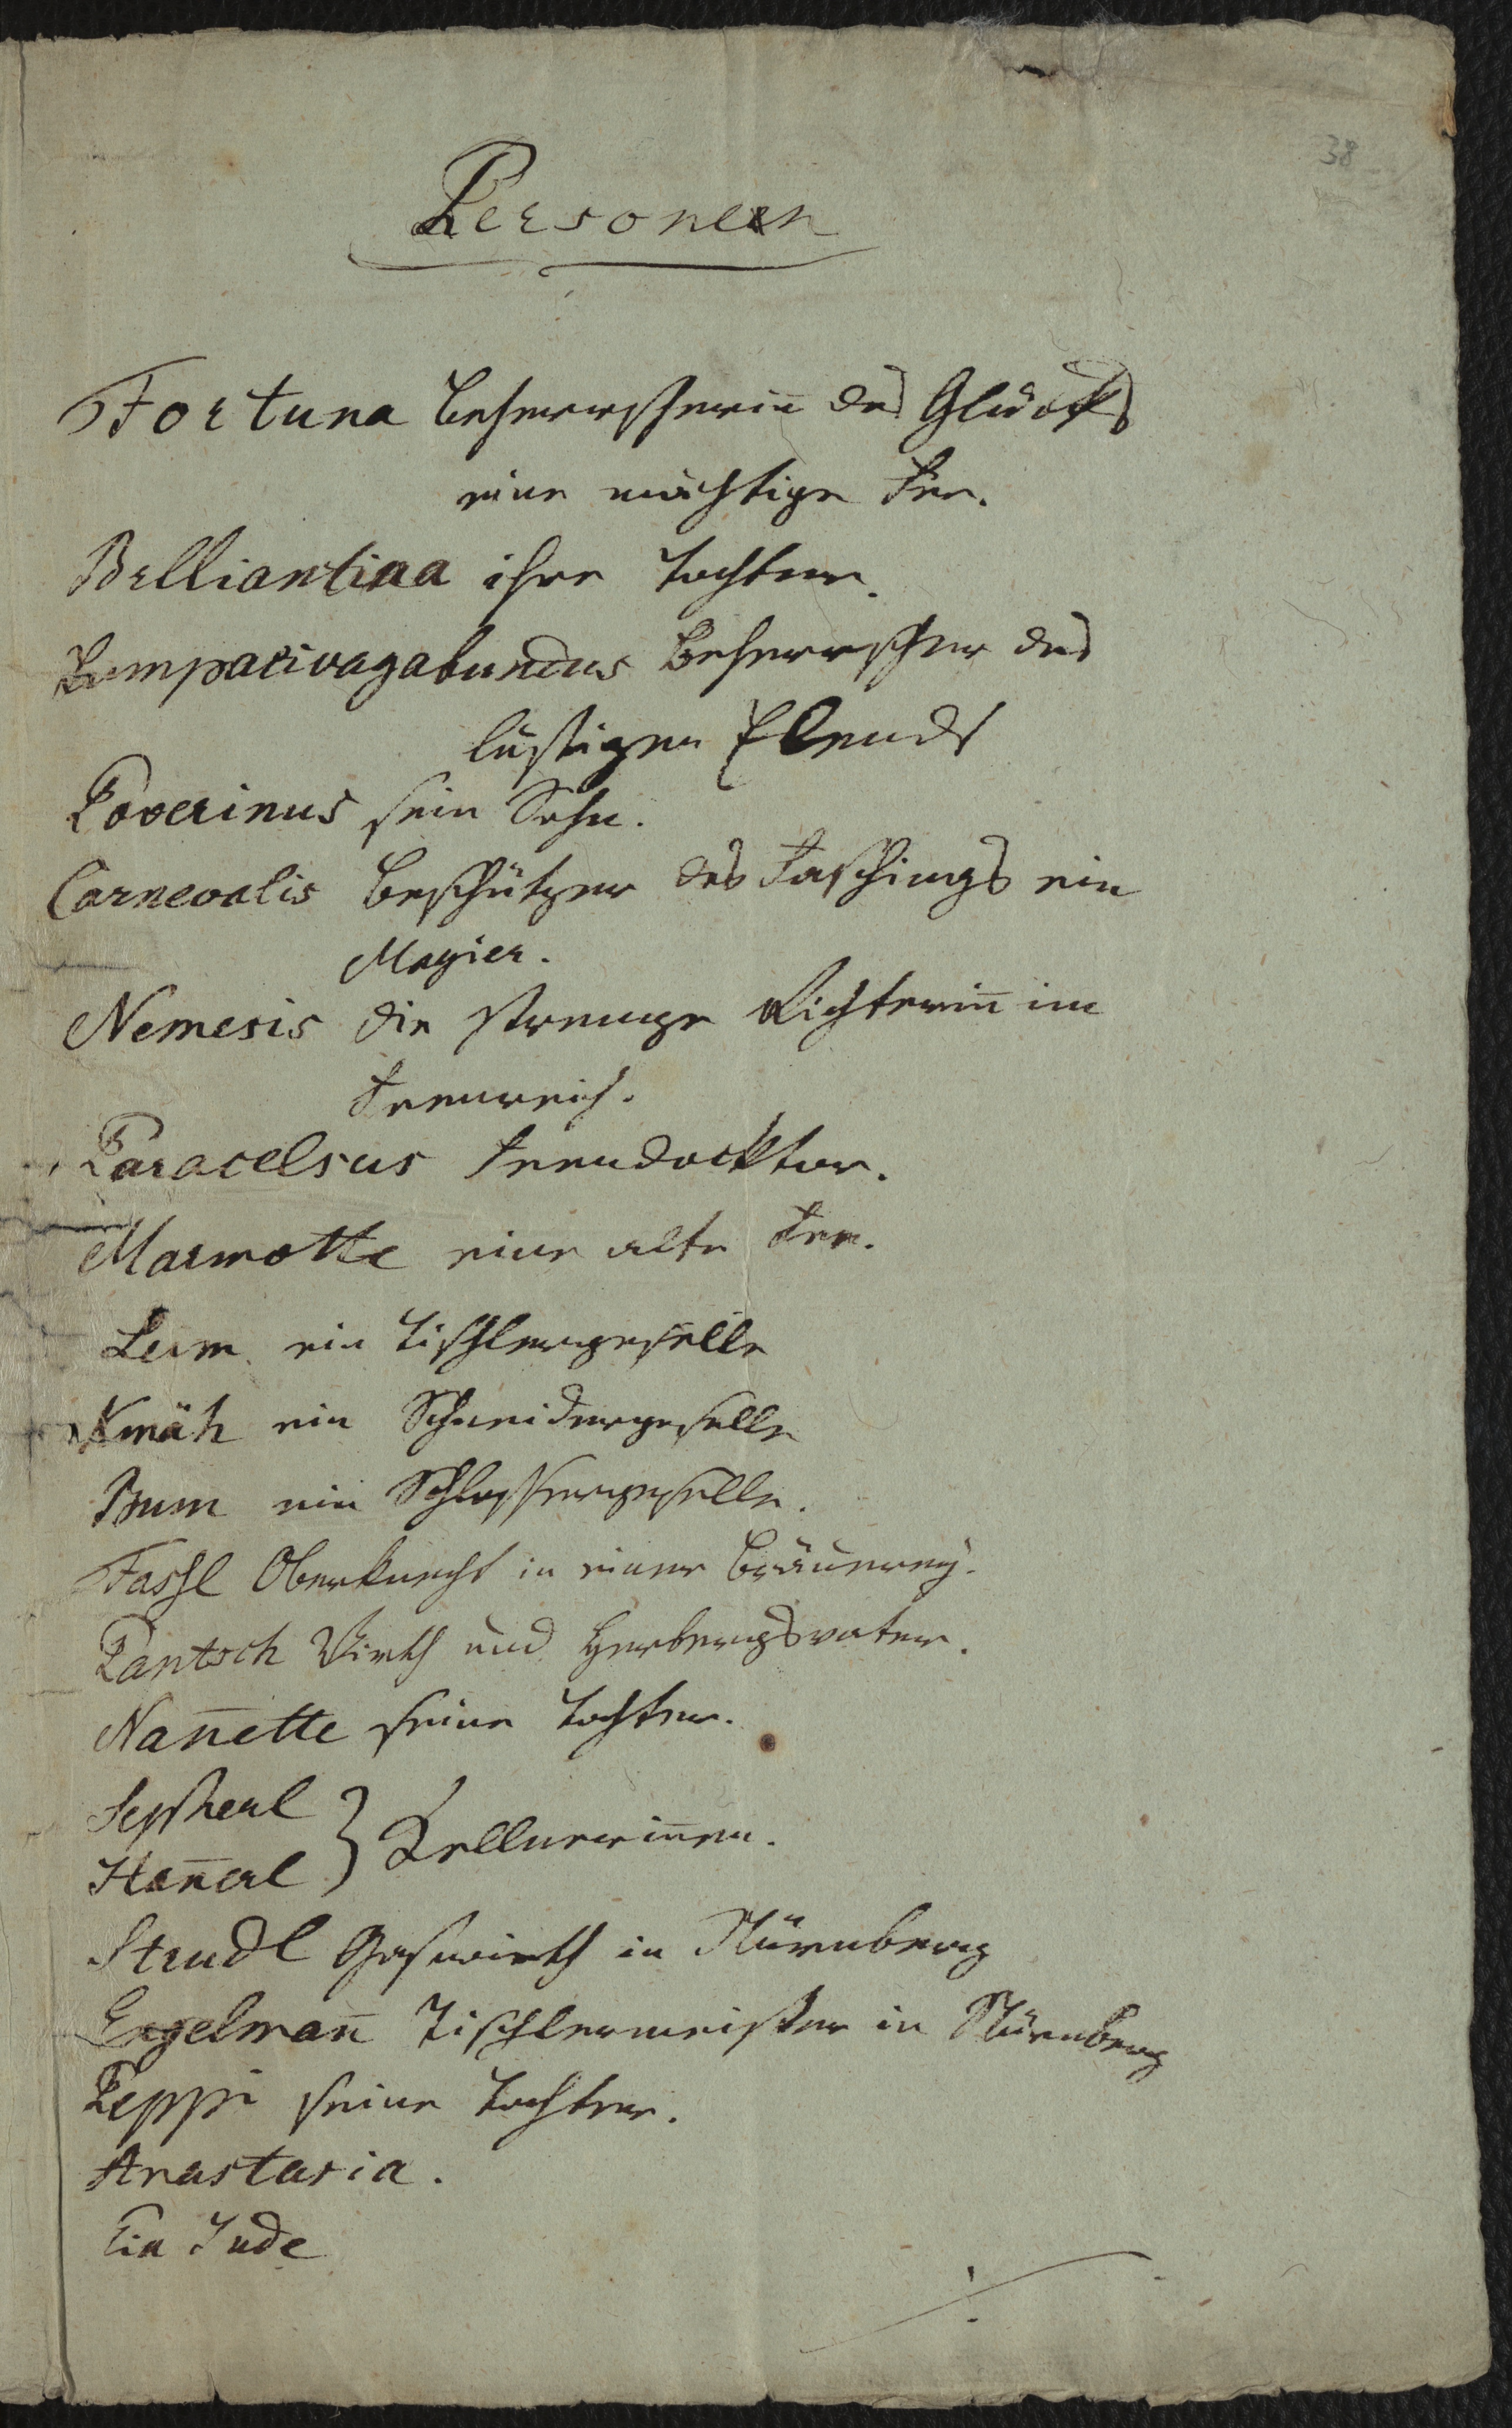 38
Personen
Fortuna Beherrscherin̄ des Glücks
eine mächtige Fee.
Brilliantina ihre Tochter.
Lumpacivagabundus Beherrscher des
lustigen Elends
Poverinus sein Sohn.
Carnevalis Beschützer des Faschings ein
Magier.
Nemesis die strenge Richterin̄ im
Feenreich.
Paracelsus Feendocktor.
Marmotte eine alte Fee.
Leim ein Tischlergeselle
Knäh ein Schneidergeselle
Bum ein Schlossergeselle.
Fassl Oberknecht in einer Bräuerey.
Pantsch Wirth und Herbergsvater.
Nan̄ette seine Tochter.
Sepherl
Han̄erl } Kellnerin̄en.
Strudl Gastwirth in Nürnberg
Engelman̄ Tischlermeister in Nürnberg
Peppi seine Tochter.
Anastasia.
Ein Jude